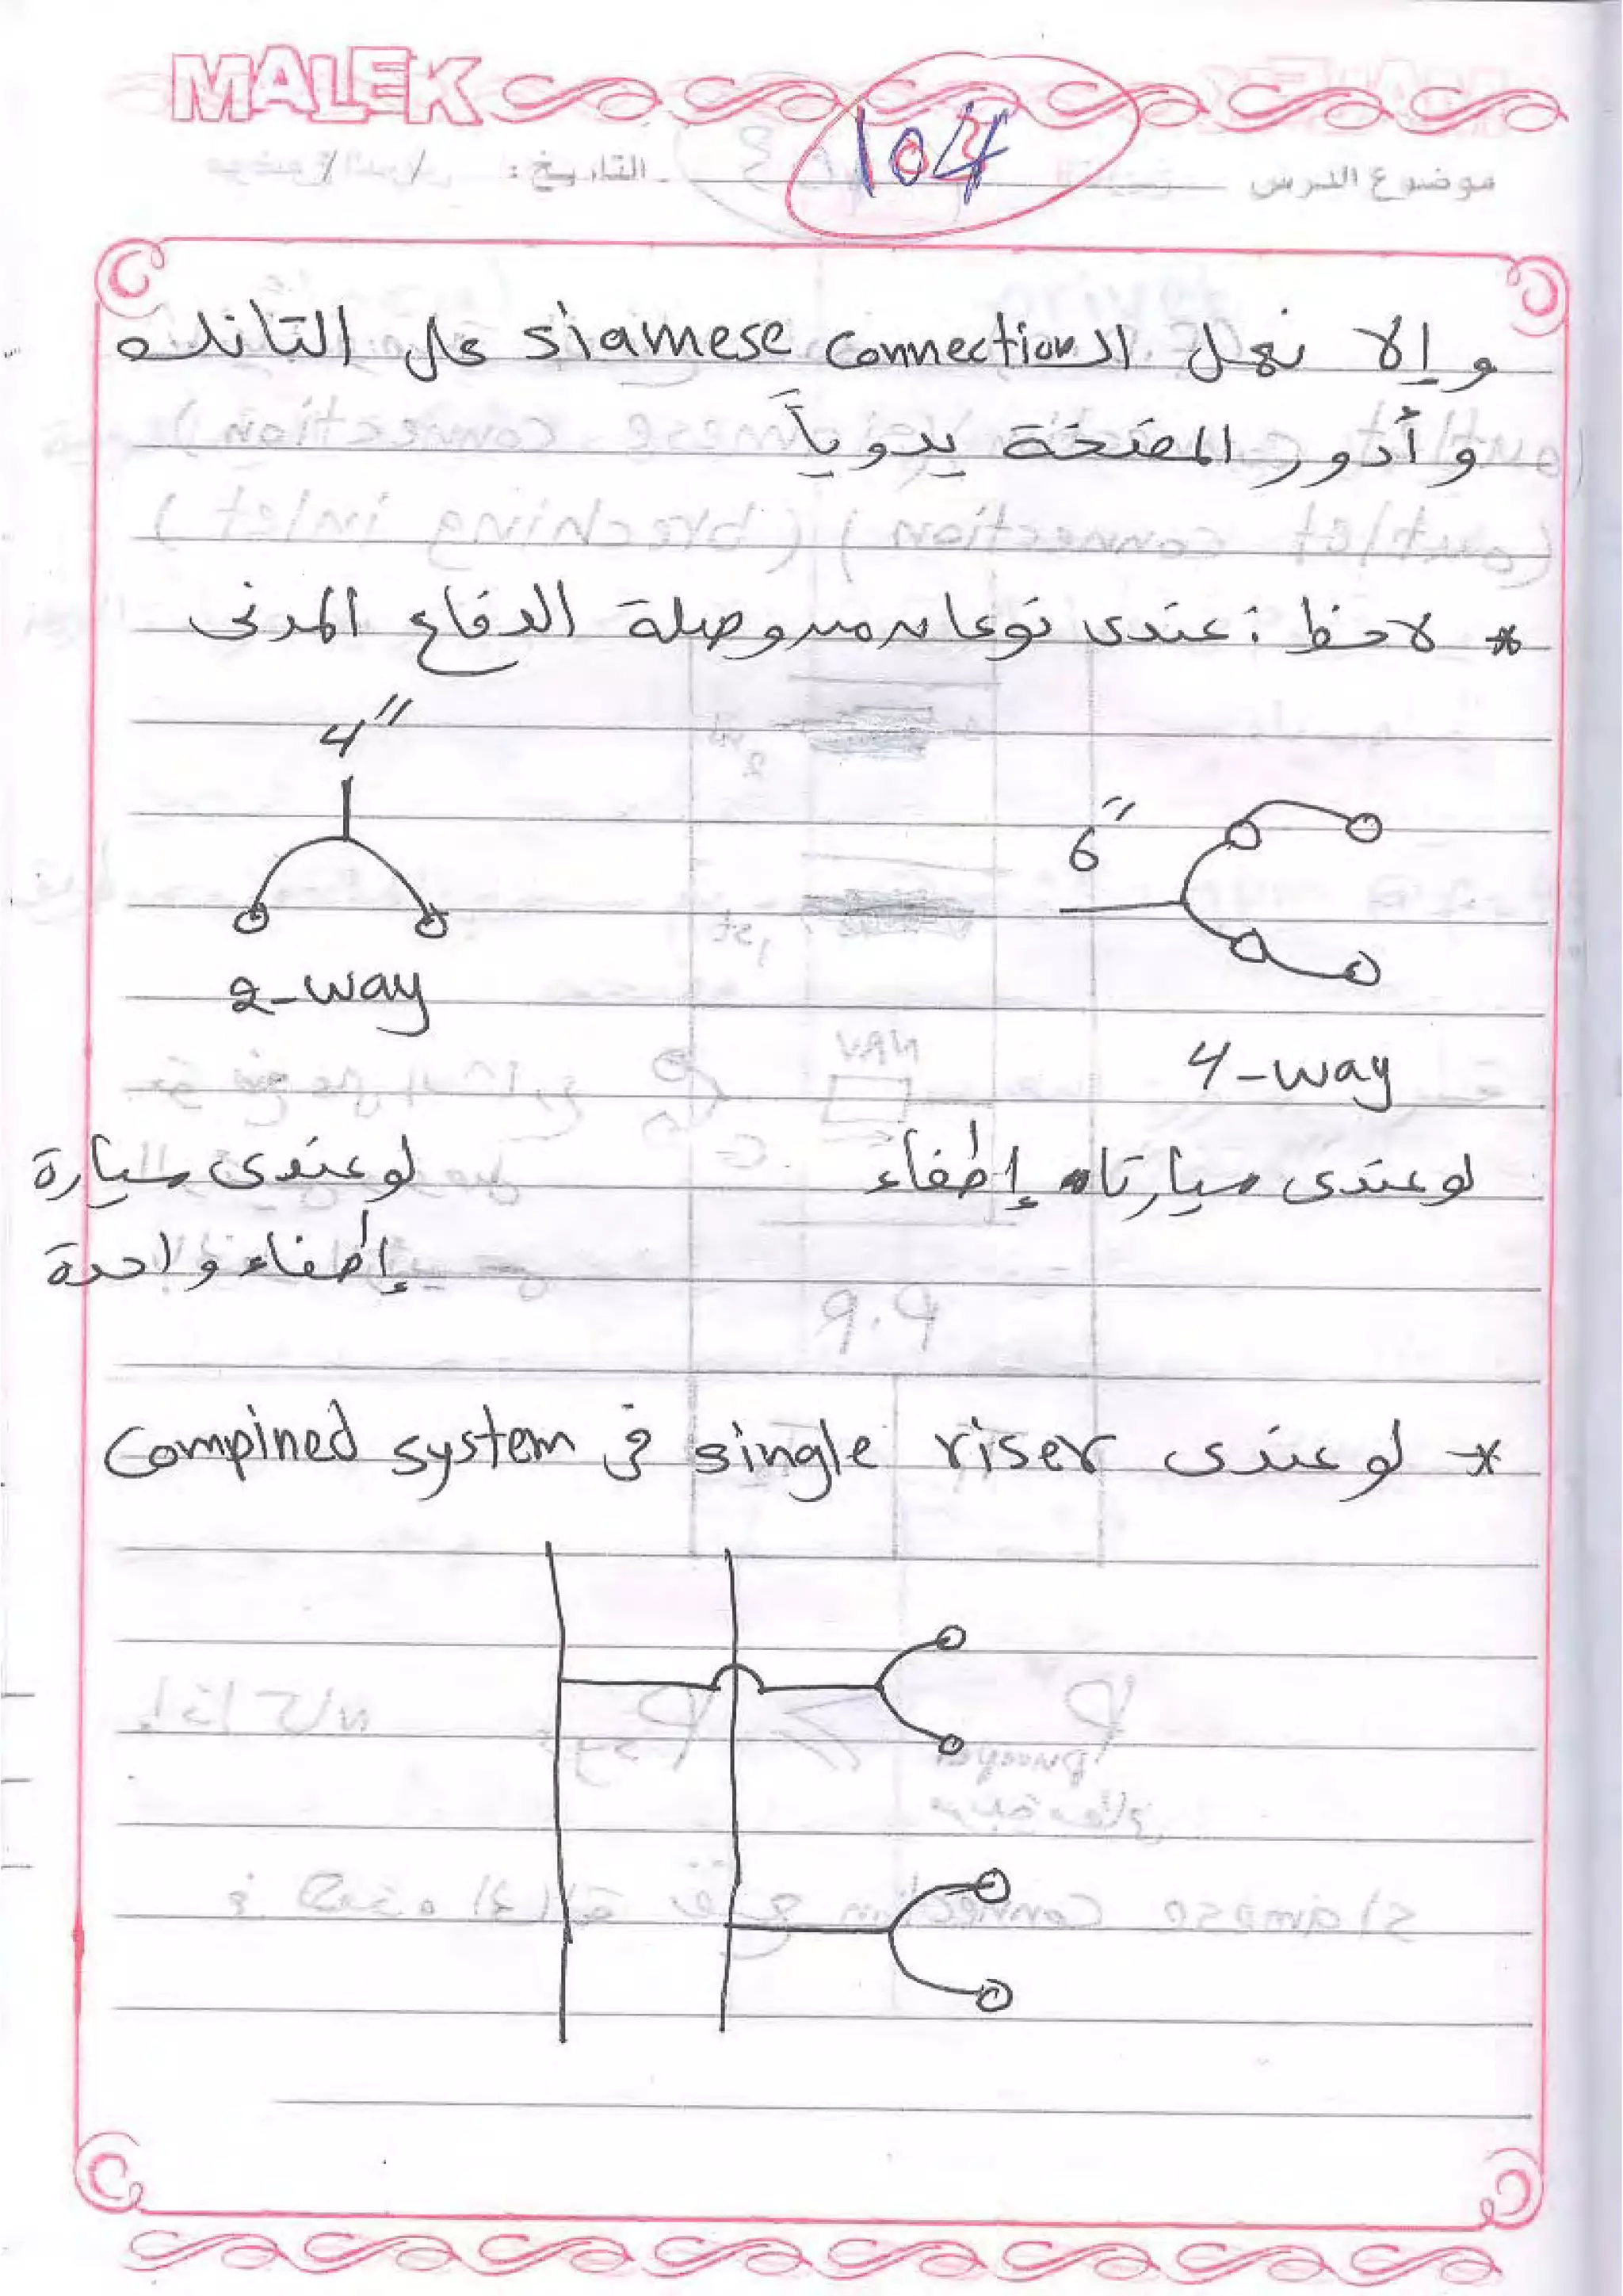 MALEK
104
موضوع الدرس التاريخ : / /
وإلا نعمل الـ siamese connection على التانك
وأدور المضخة يدوياً
* لاحظ : عندى نوعان من وصلة الدفاع المدنى
4"
6"
2-way
4-way
لو عندى سيارتان إطفاء
لو عندى سيارة
إطفاء واحدة
* لو عندى single riser فى Compined system